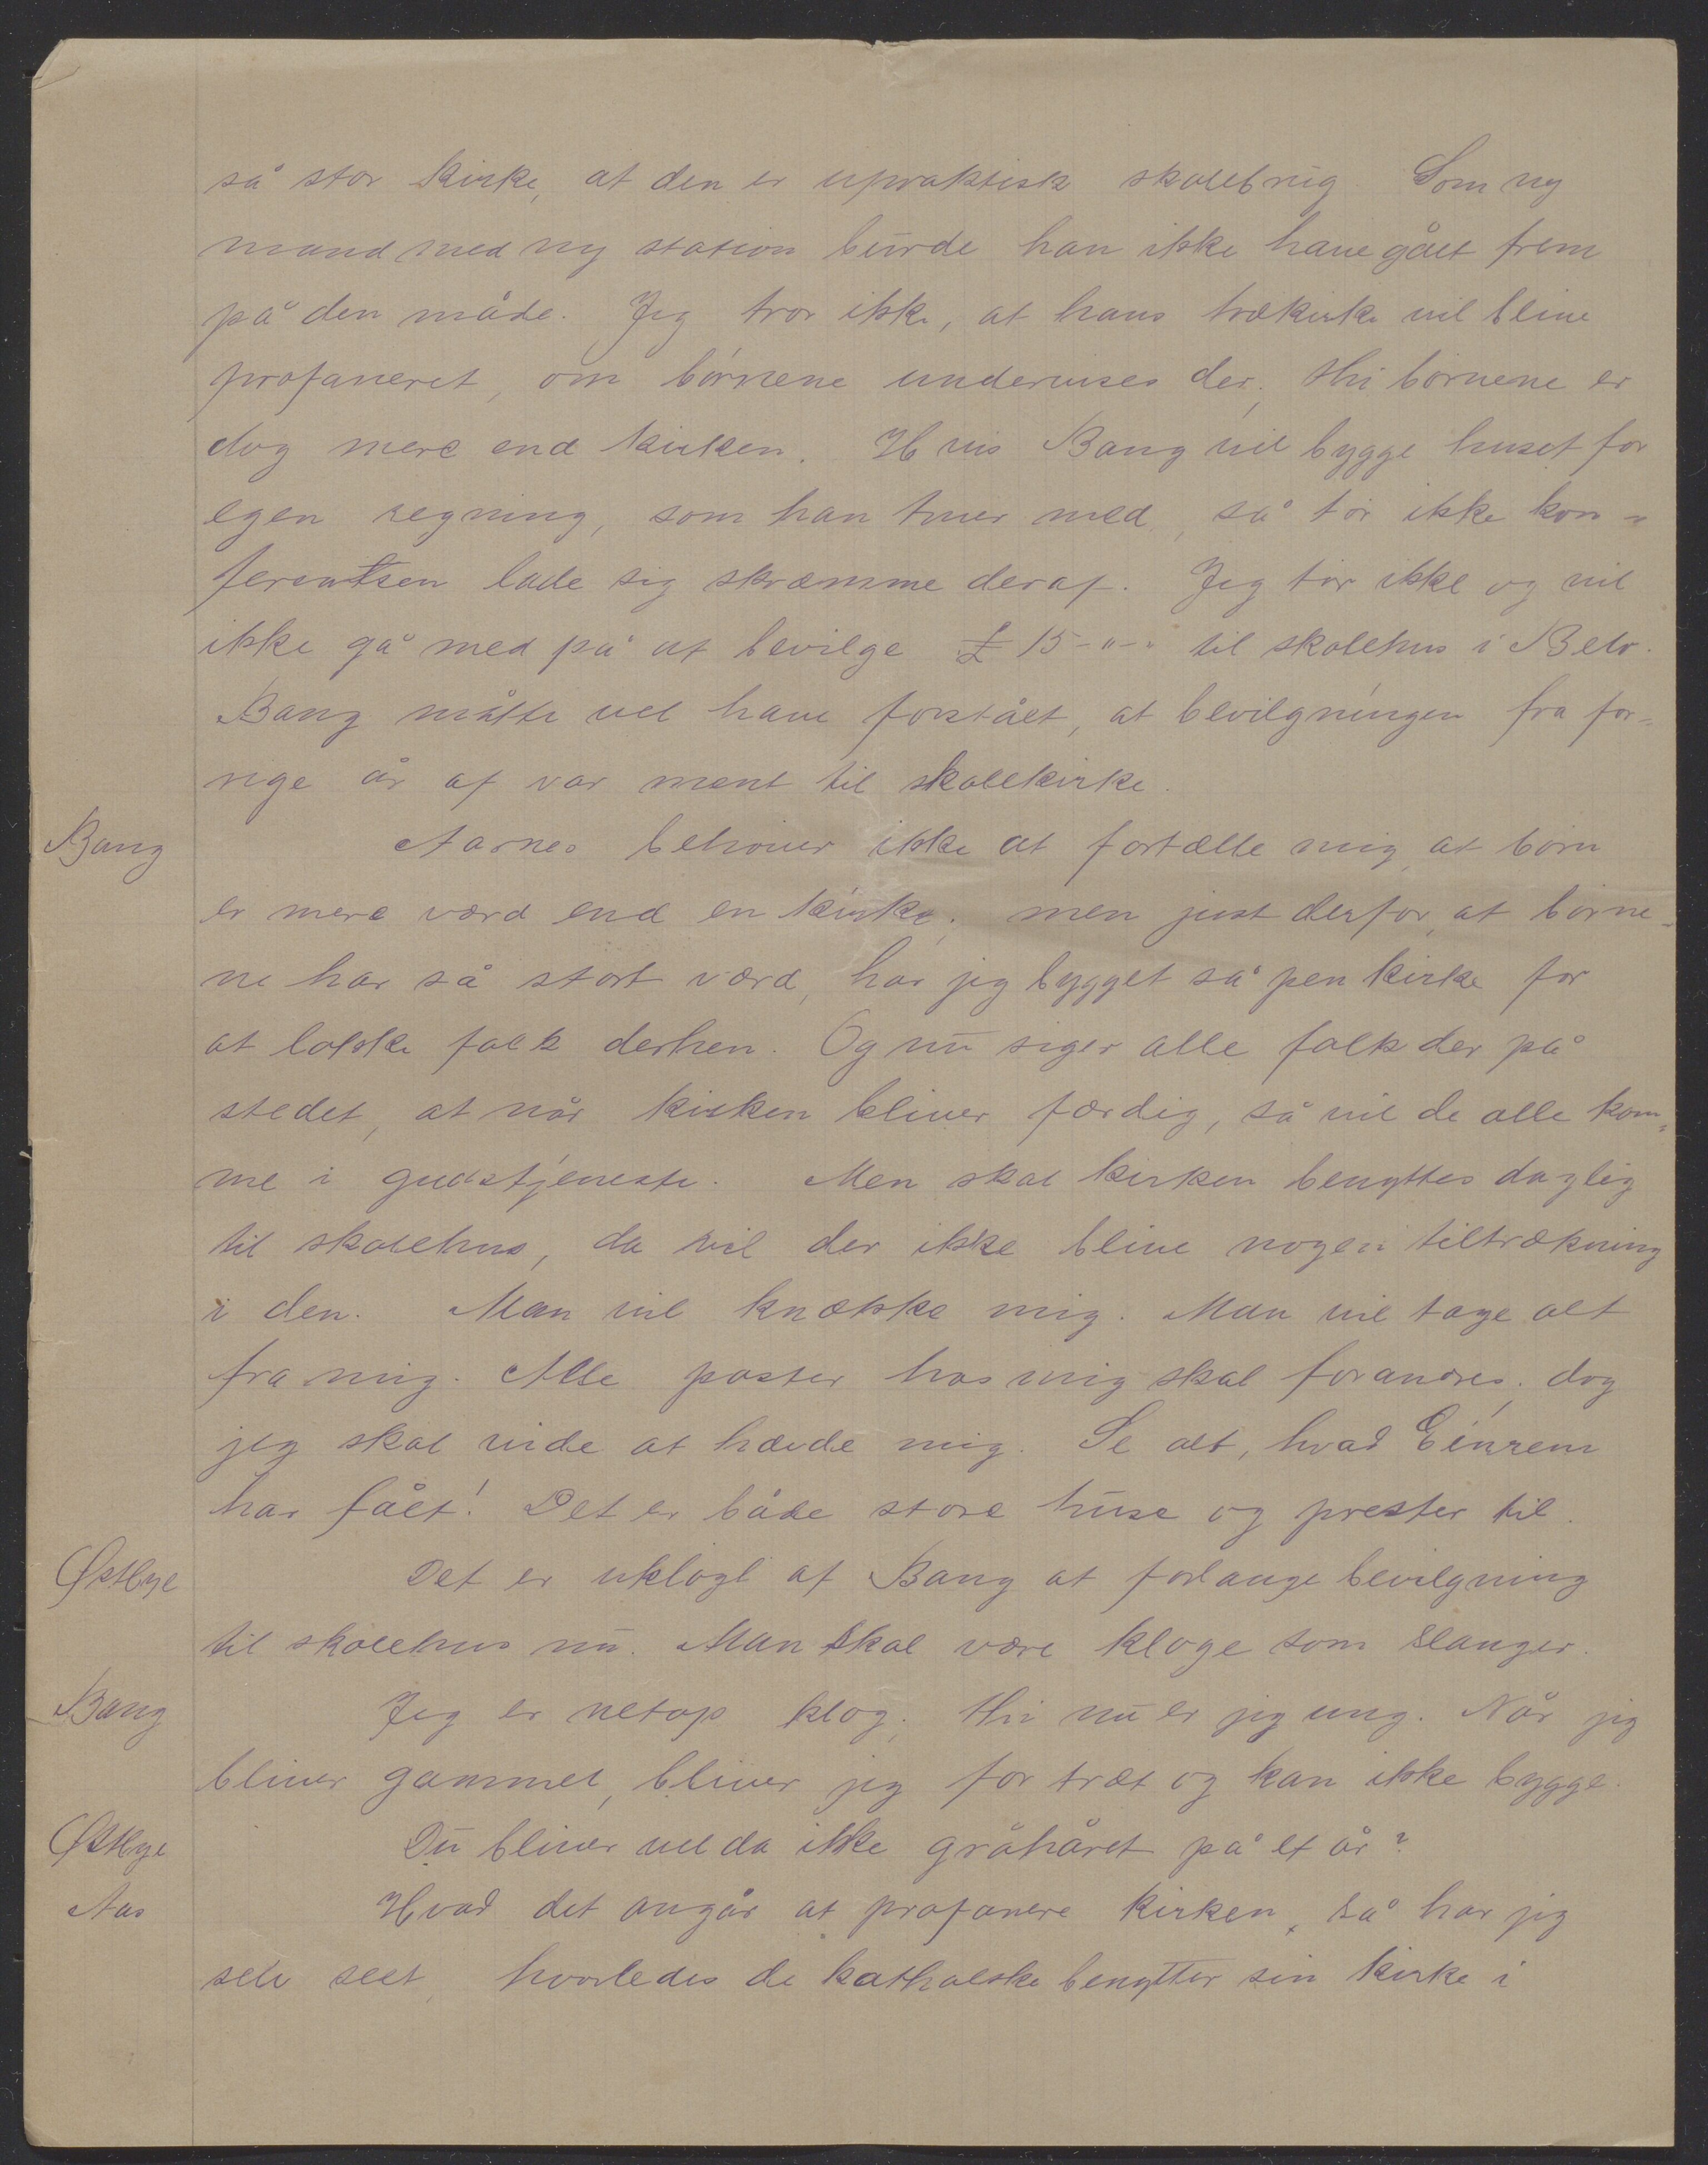 så stor kirke, at den er upraktisk skolebrug. Som ny
mand med ny station burde han ikke have gået frem
på den måde. Jeg tror ikke, at hans trækirke vil blive
profaneret, om børnene undervises der; thi børnene er
dog mere end kirken. Hvis Bang vil bygge huset for
egen regning, som han truer med, så tør ikke kon-
ferentsen lade sig skræmme deraf. Jeg tør ikke og vil
ikke gå med på at bevilge £ 15-"-" til skolehus i Belo.
Bang måtte vel have forstået, at bevilgningen fra for-
rige år af var ment til skolekirke.
Bang Aarnes behøver ikke at fortælle mig, at børn
er mere værd end en kirke; men just derfor, at børne-
ne har så stort værd, har jeg bygget så pen kirke for
at lokke folk derhen. Og nu siger alle folk der på
stedet, at når kirken bliver færdig, så vil de alle kom-
me i gudstjeneste. Men skal kirken benyttes daglig
til skolehus, da vil der ikke blive nogen tiltrækning
i den. Man vil knække mig. Man vil tage alt
fra mig. Alle poster hos mig skal forandres; dog
jeg skal vide at hævde mig. Se alt, hvad Einrem
har fået! Det er både store huse og prester til.
Østbye Det er uklogt af Bang at forlange bevilgning
til skolehus nu. Man skal være kloge som slanger.
Bang Jeg er netop klog; thi nu er jeg ung. Når jeg
bliver gammel, bliver jeg for træt og kan ikke bygge.
Østbye Du bliver vel da ikke gråhåret på et år?
Aas Hvad det angår at profanere kirken, så har jeg
selv seet, hvorledes de katholske benytter sin kirke i